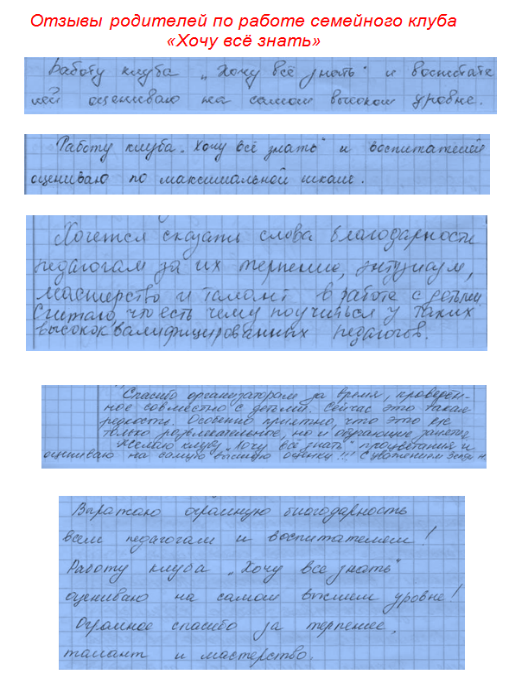 Отзывы родителей по работе семейного клуба
«Хочу всё знать»
Работу клуба „Хочу всё знать" и воспитате
лей оцениваю на самом высоком уровне.
Работу клуба „Хочу всё знать" и воспитателей
оцениваю по максимальной шкале.
Хочется сказать слова благодарности
педагогам за их терпение, энтузиазм,
мастерство и талант в работе с детьми
Считаю, что есть чему поучиться у таких
высококвалифицированных педагогов.
Спасибо организаторам за время, проведен-
ное совместно с детьми. Сейчас это такая
редкость. Особенно приятно, что это не
только развлекательные, но и обучающие занятия
Желаю клубу „Хочу всё знать" процветания и
оцениваю на самую высшую оценку!!! С уважением
Выражаю огромную благодарность
всем педагогам и воспитателям!
Работу клуба „Хочу все знать"
оцениваю на самом высшем уровне!
Огромное спасибо за терпение,
талант и мастерство.